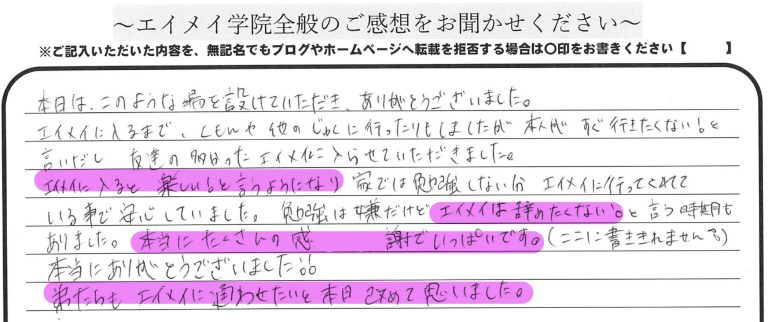 ～エイメイ学院全般のご感想をお聞かせください～
※ご記入いただいた内容を、無記名でもブログやホームページへ転載を拒否する場合は〇印をお書きください【　　】
本日は、このような場を設けていただき、ありがとうございました。
エイメイに入るまで、くもんや他のじゅくに行ったりもしましたが 本人が すぐ行きたくない!と
言いだし 友達の多かった エイメイに入らせていただきました。
エイメイに入ると 楽しいと言うようになり 家では勉強しない分 エイメイに行ってくれて
いる事で安心していました。 勉強は嫌だけど エイメイは辞めたくない。と言う時期も
ありました。 本当にたくさんの感 謝でいっぱいです。(ここに書ききれません)
本当にありがとうございました!!
弟たちも エイメイに通わせたいと本日 改めて思いました。